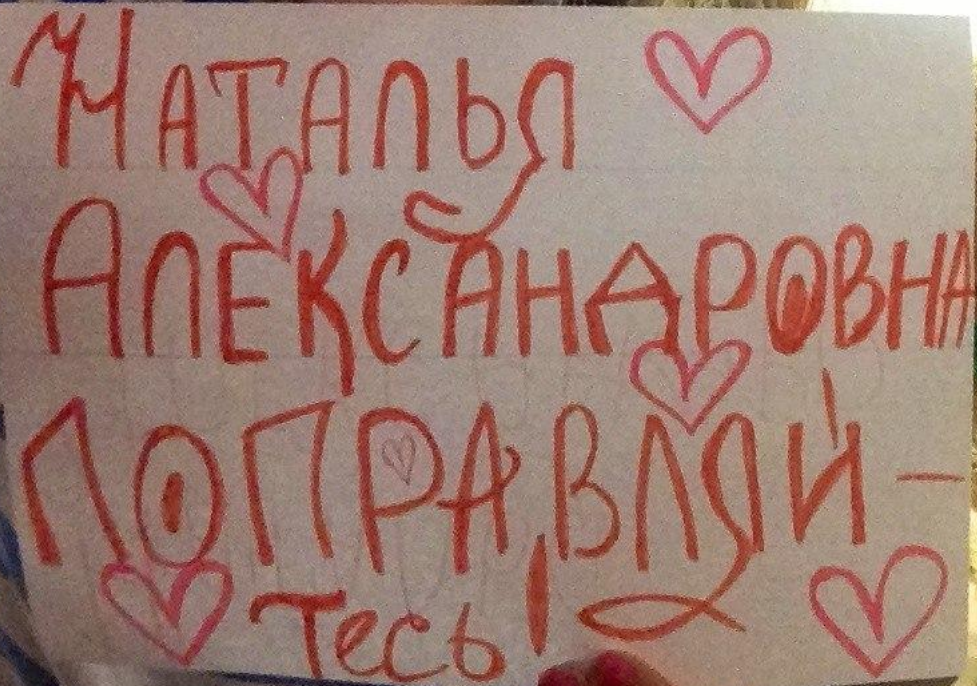 Наталья
Александровна
Поправляй-
тесь!